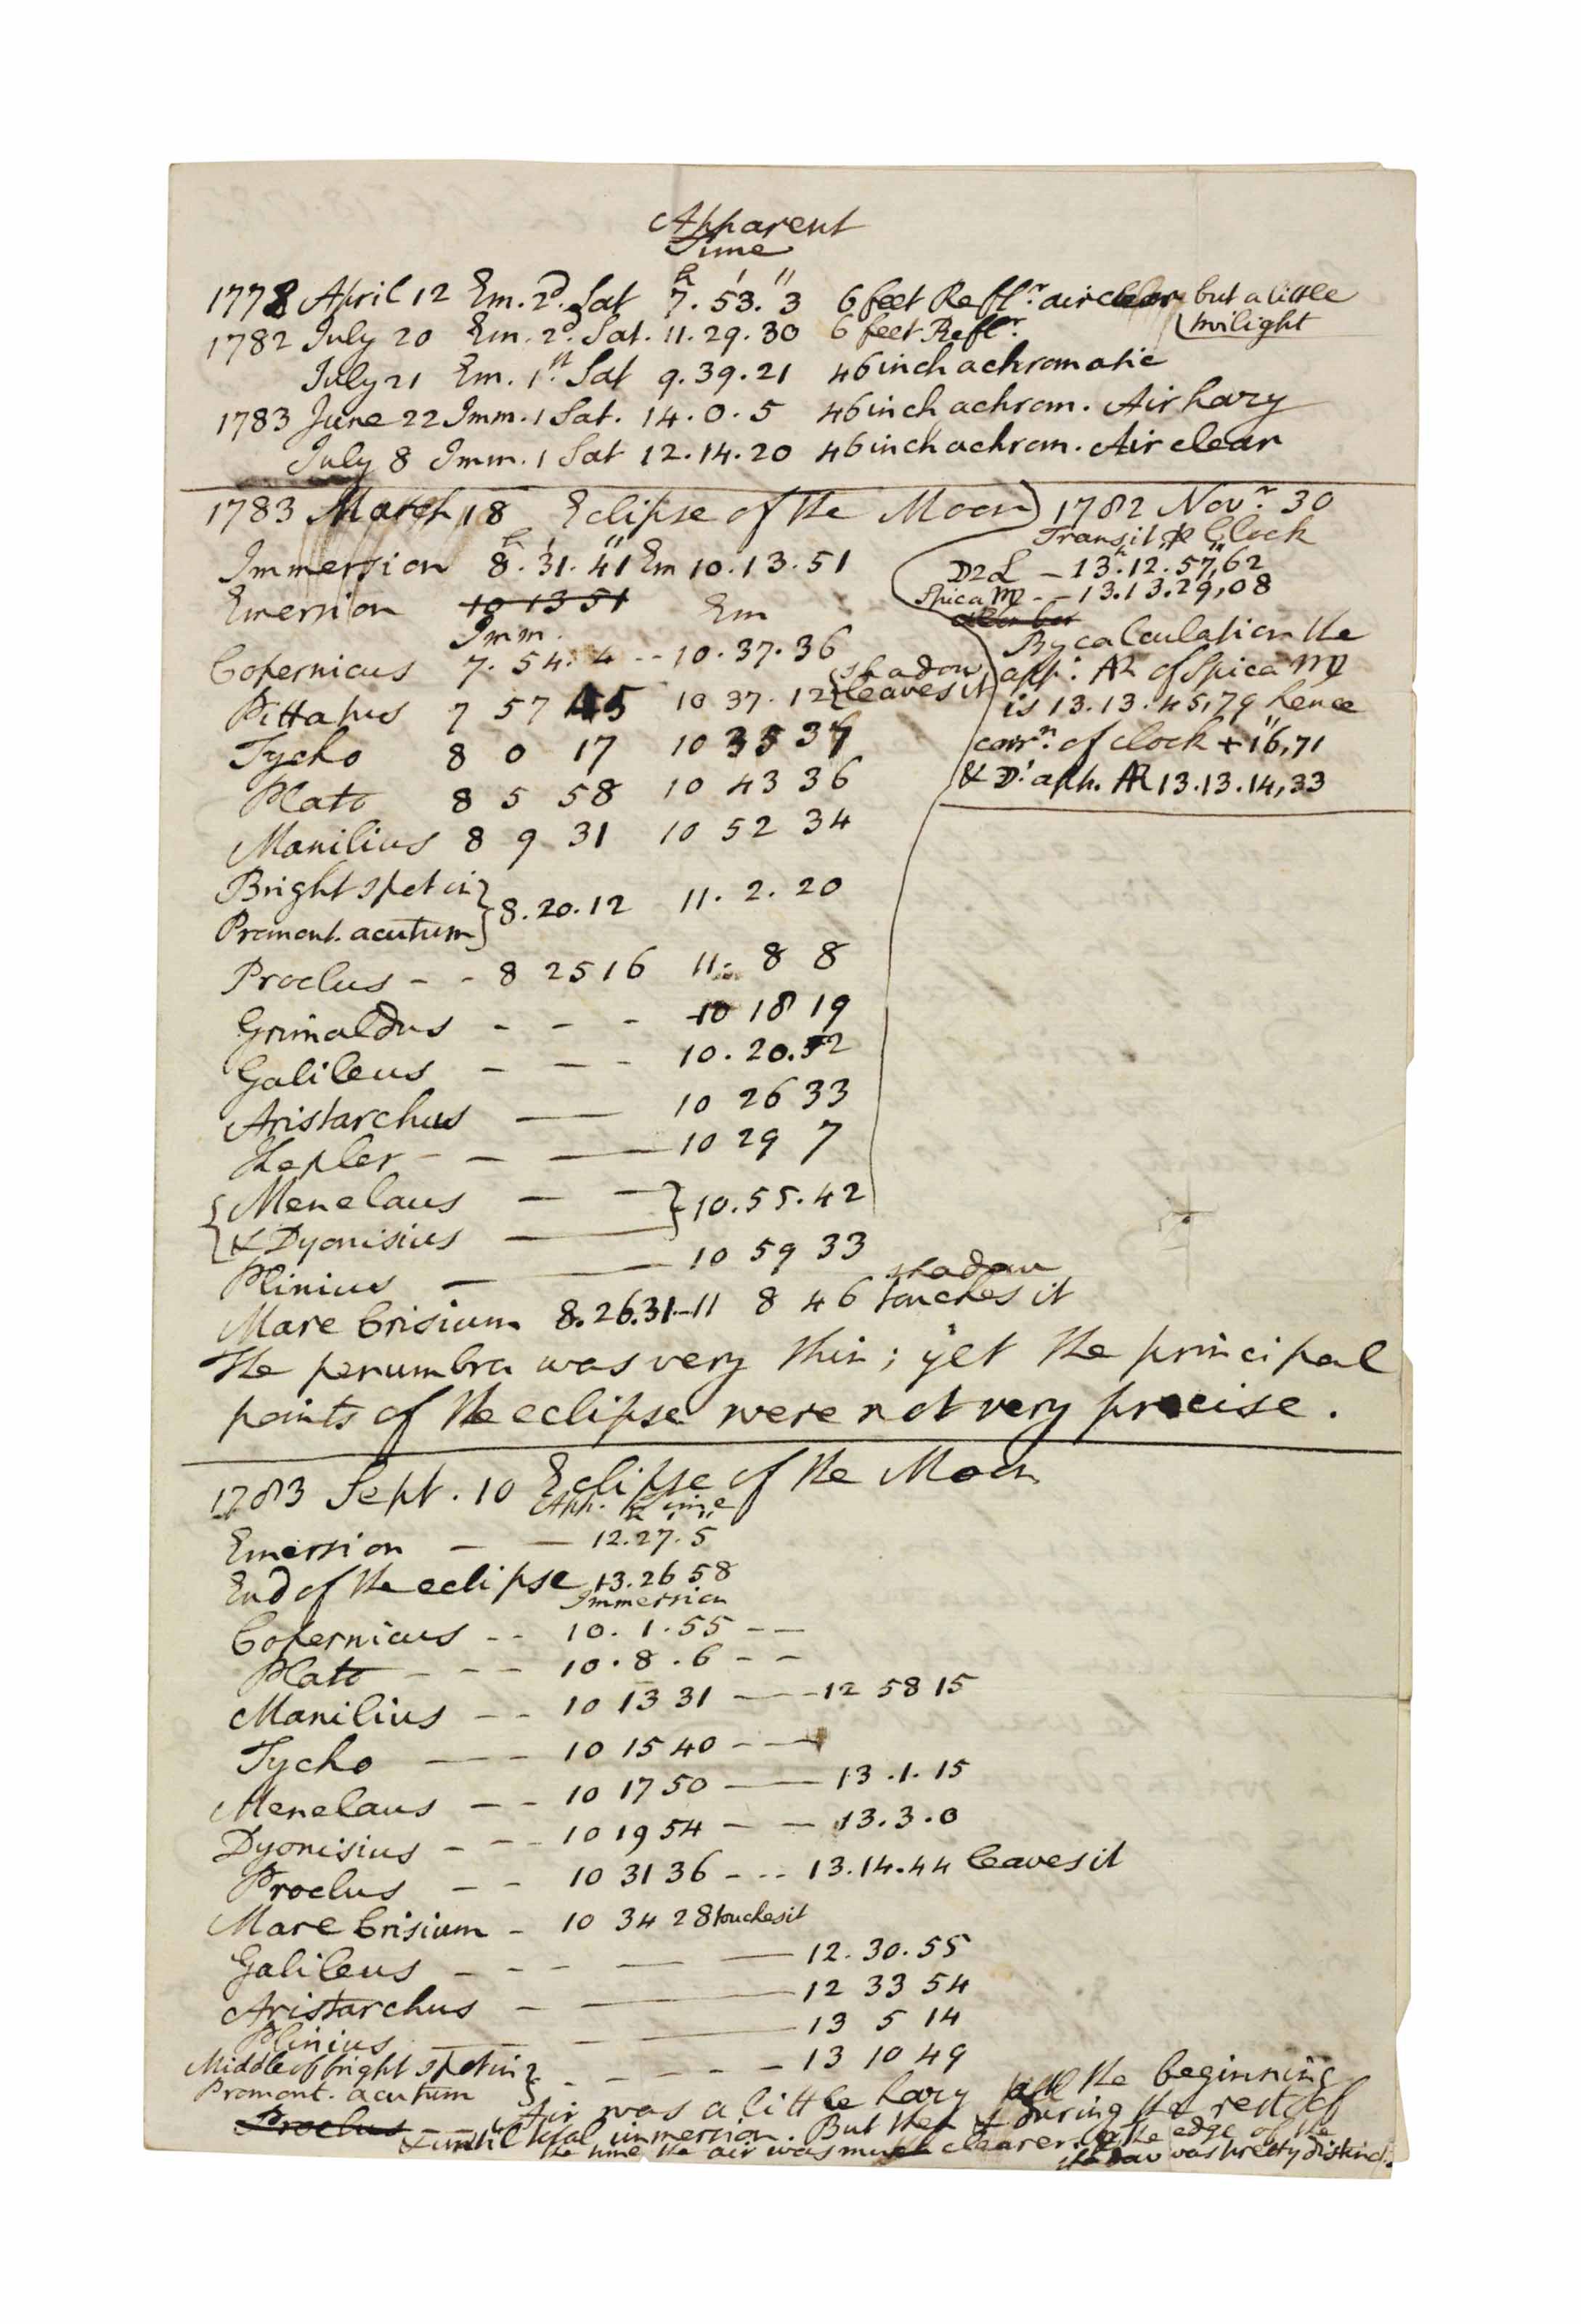 Apparent
Time
h ' "
1778 April 12 Em. 2d. Sat 7. 53. 3 6 feet Reflr. air clear but a little
twilight
1782 July 20 Em. 2d. Sat. 11. 29. 30 6 feet Reflr.
July 21 Em. 1st. Sat 9. 39. 21 46 inch achromatic
1783 June 22 Imm. 1 Sat. 14. 0. 5 46 inch achrom. Air hazy
July 8 Imm. 1 Sat 12. 14. 20 46 inch achrom. Air clear
1783 March 18 Eclipse of the Moon
h ' "
Immersion 8. 31. 41 Em 10. 13. 51
Emersion 10 13 51
Imm. Em
Copernicus 7. 54. 4 -- 10. 37. 36
Pittatus 7 57 45 10 37. 12 shadow
leaves it
Tycho 8 0 17 10 35 34
Plato 8 5 58 10 43 36
Manilius 8 9 31 10 52 34
Bright spot in
Promont. acutum 8. 20. 12 11. 2. 20
Proclus - - 8 25 16 11. 8 8
Grimaldus - - - 10 18 19
Galileus - - - 10. 20. 52
Aristarchus — 10 26 33
Kepler - - — 10 29 7
Menelaus — —
& Dyonisius — 10. 55. 42
Plinius — — 10 59 33
Mare Crisium 8. 26. 31 - 11 8 46 shadow
touches it
The penumbra was very thin; yet the principal
points of the eclipse were not very precise.
1782 Novr. 30
Transit Clock
D2L — 13h. 12'. 57",62
Spica ♍ -- 13. 13. 29,08
By calculation the
app: AR of Spica ♍
is 13. 13. 45,79 hence
corrn. of clock + 16",71
& D's app. AR 13. 13. 14,33
1783 Sept. 10 Eclipse of the Moon
App. Time
h ' "
Emersion — — 12. 27. 5
End of the eclipse 13. 26 58
Immersion
Copernicus -- 10. 1. 55 --
Plato - - - 10. 8. 6 --
Manilius -- 10 13 31 — - 12 58 15
Tycho — - 10 15 40 - —
Menelaus — - 10 17 50 — 13. 1. 15
Dyonisius - - - 10 19 54 - — 13. 3. 0
Proclus — - 10 31 36 - -- 13. 14. 44 leaves it
Mare Crisium - 10 34 28 touches it
Galileus - - - — — 12. 30. 55
Aristarchus - — 12 33 54
Plinius — - — 13 5 14
Middle of bright spot in
Promont. acutum - - - - - 13 10 49
Proclus
Air was a little hazy the beginning
& until total immersion. But then & during the rest of
the time the air was much clearer. & the edge of the
shadow was pretty distinct.